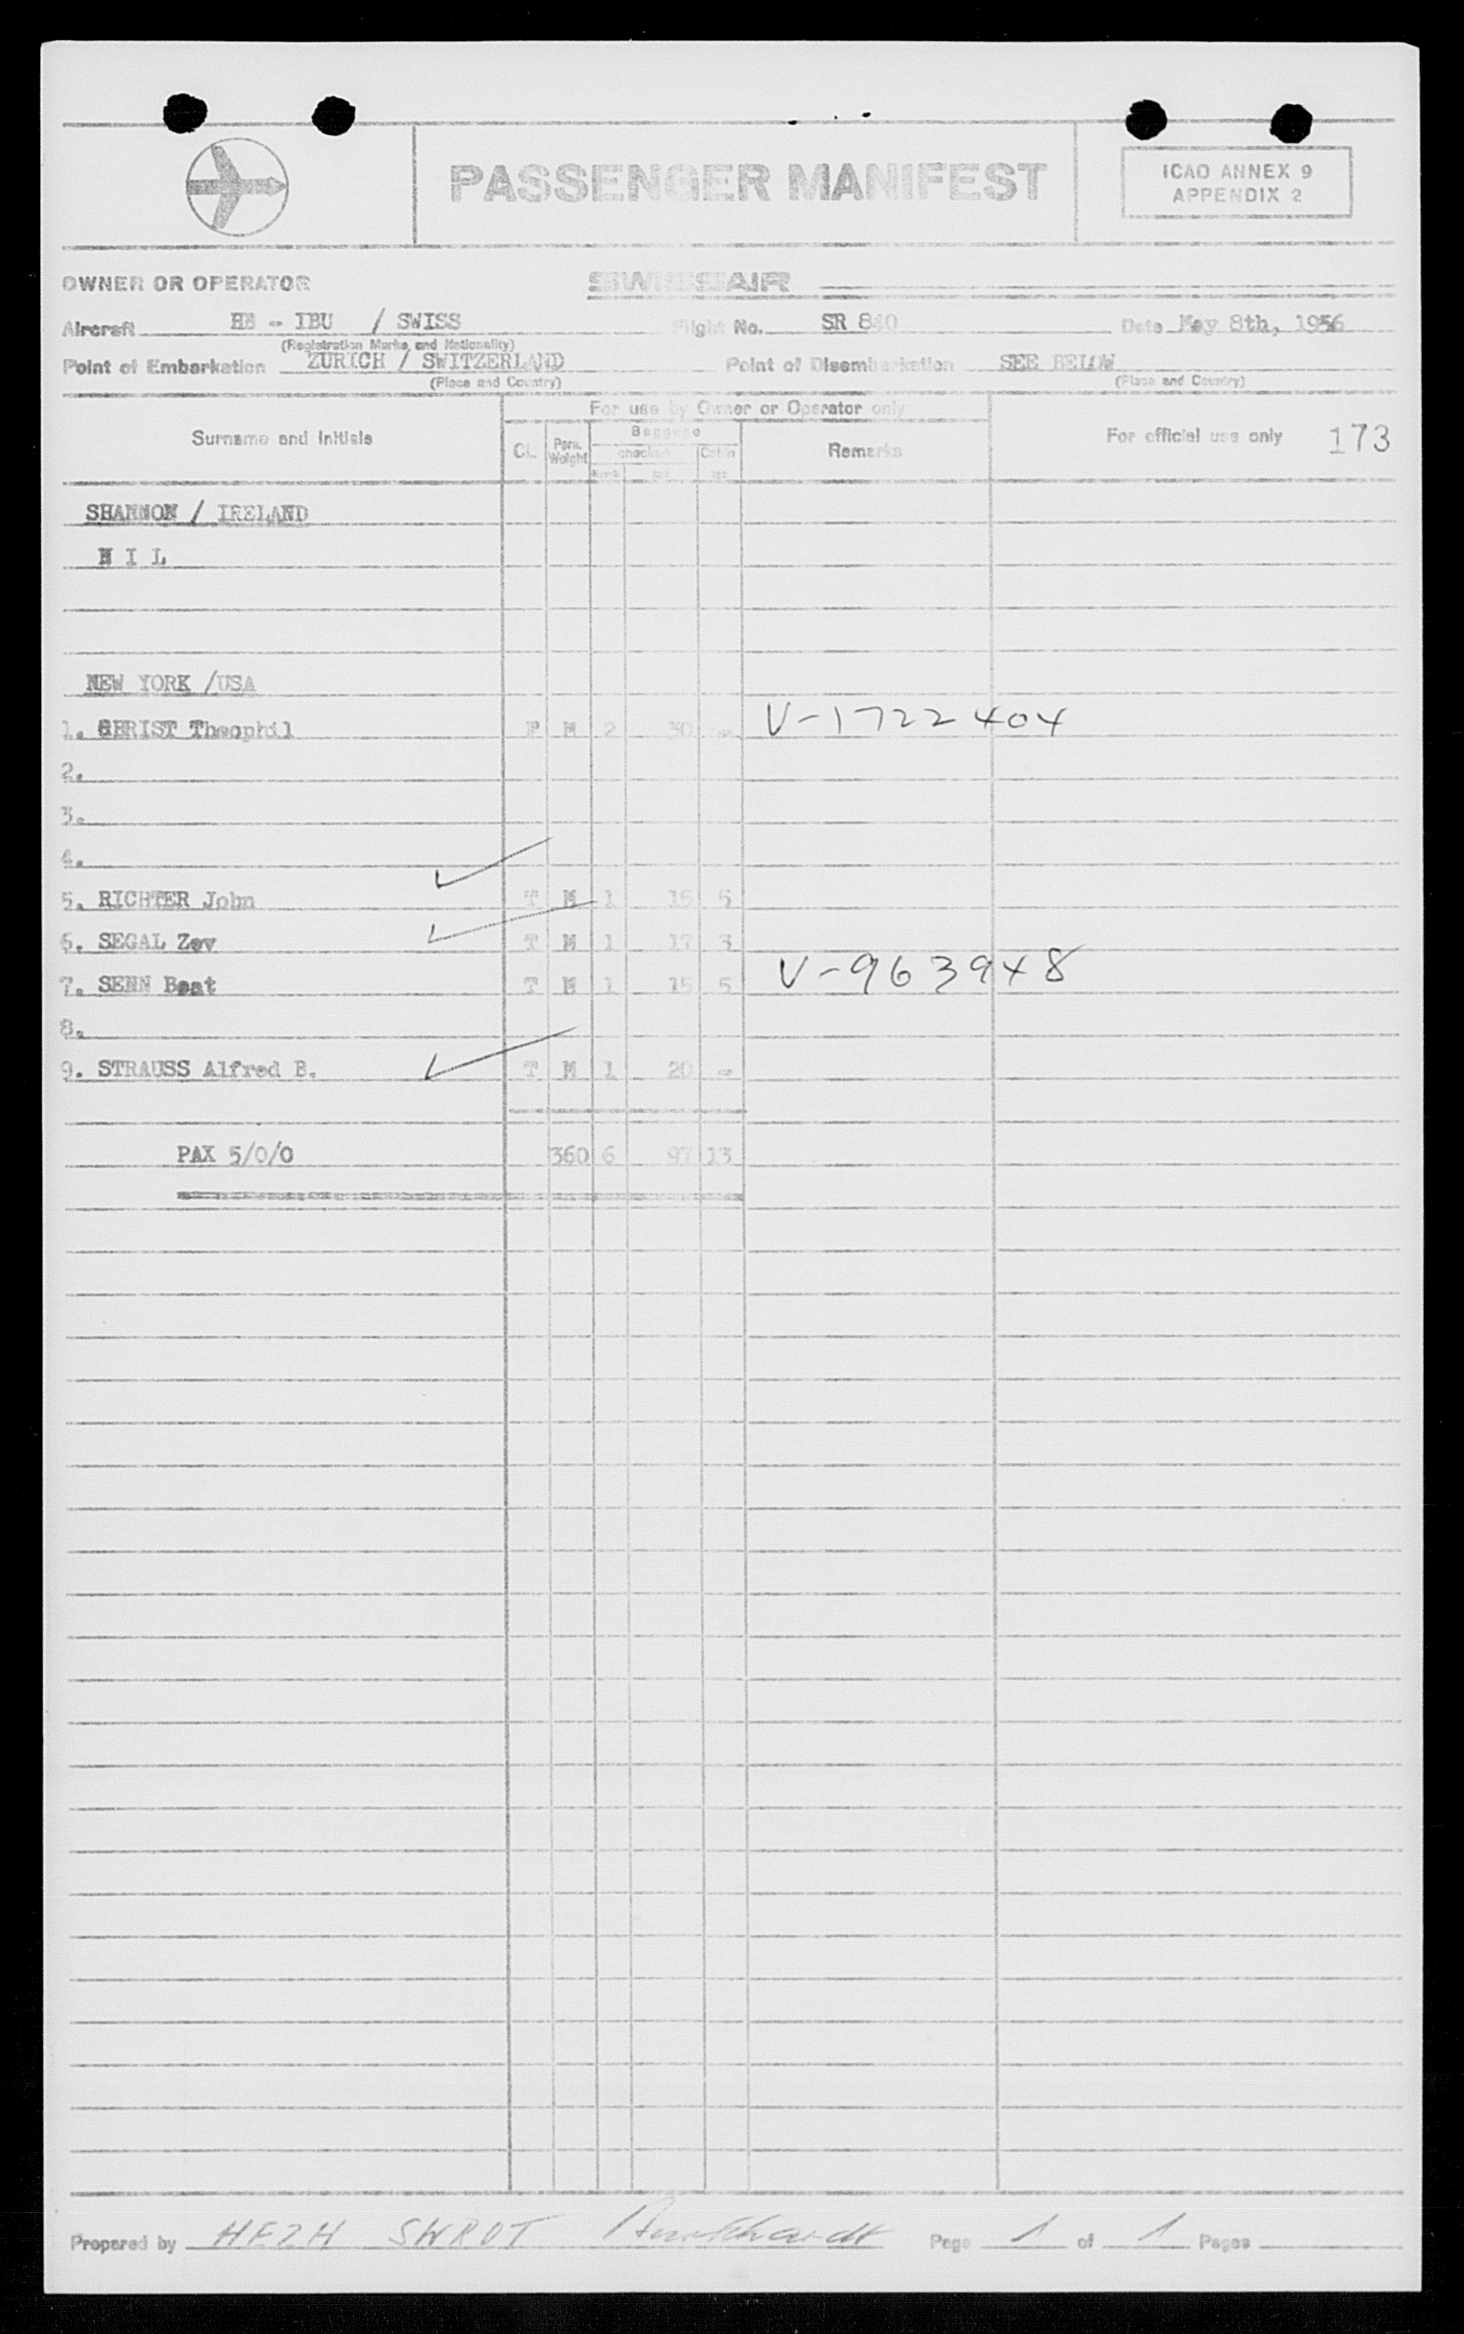 PASSENGER MANIFEST
ICAO ANNEX 9
APPENDIX 2
OWNER OR OPERATOR SWISSAIR
Aircraft HB - IBU / SWISS Flight No. SR 840 Date May 8th, 1956
(Registration Marks and Nationality)
Point of Embarkation ZURICH / SWITZERLAND Point of Disembarkation SEE BELOW
(Place and Country) (Place and Country)
For use by Owner or Operator only
Surname and Initials CL. Pers. Weight Baggage checked Cabin Remarks For official use only 173
SHANNON / IRELAND
N I L
NEW YORK /USA
1. GERIST Theophil F M 2 30 - V-1722404
2.
3.
4.
5. RICHTER John T M 1 15 5
6. SEGAL Zev T M 1 17 3
7. SENN Beat T M 1 15 5 V-963948
8.
9. STRAUSS Alfred B. T M 1 20 -
PAX 5/0/0 360 6 97 13
Prepared by HEZH SWROT Burkhardt Page 1 of 1 Pages